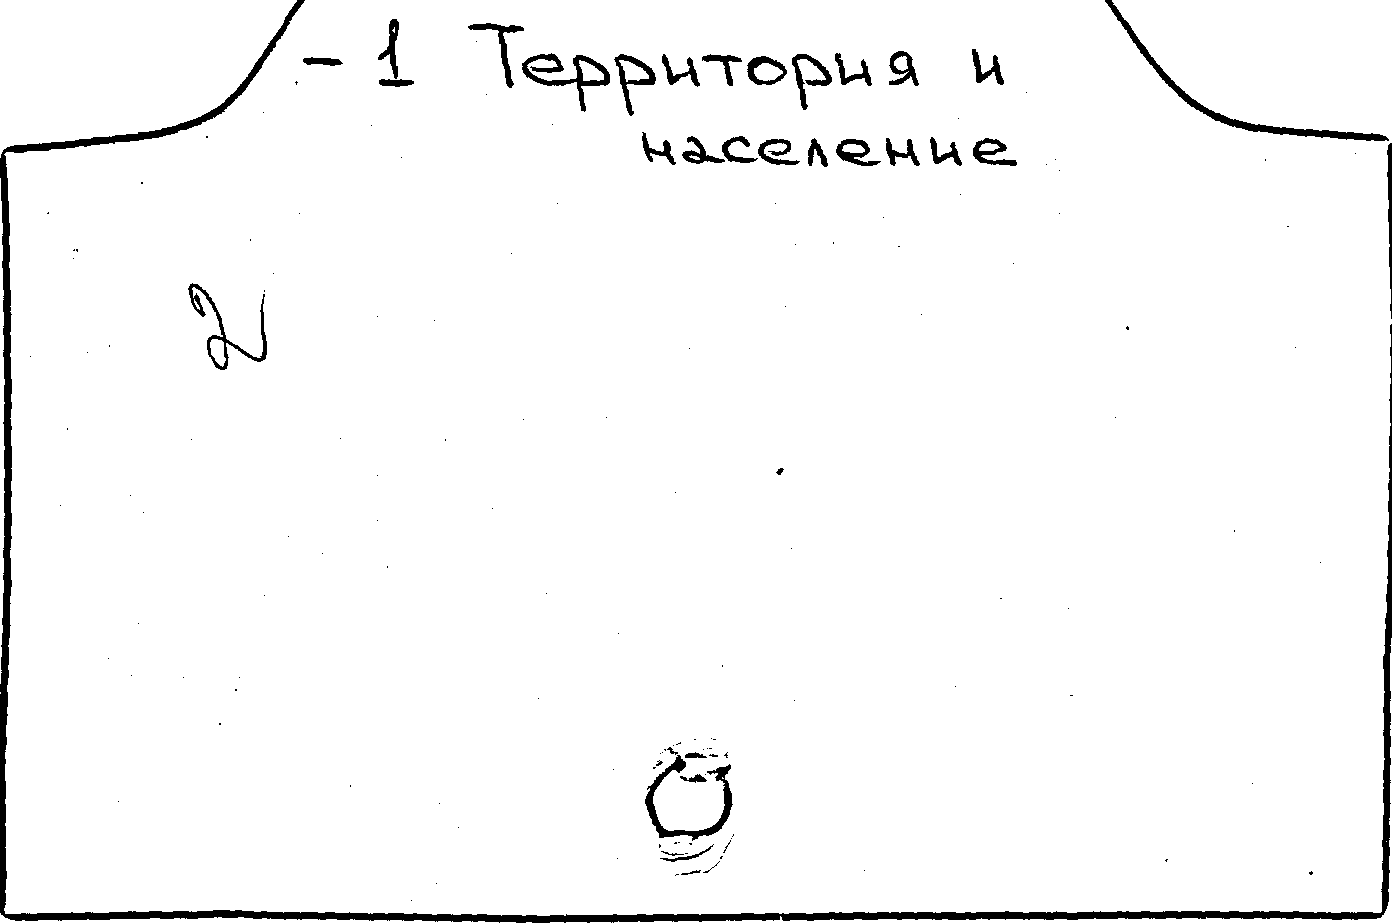 - 1 Территория и
население